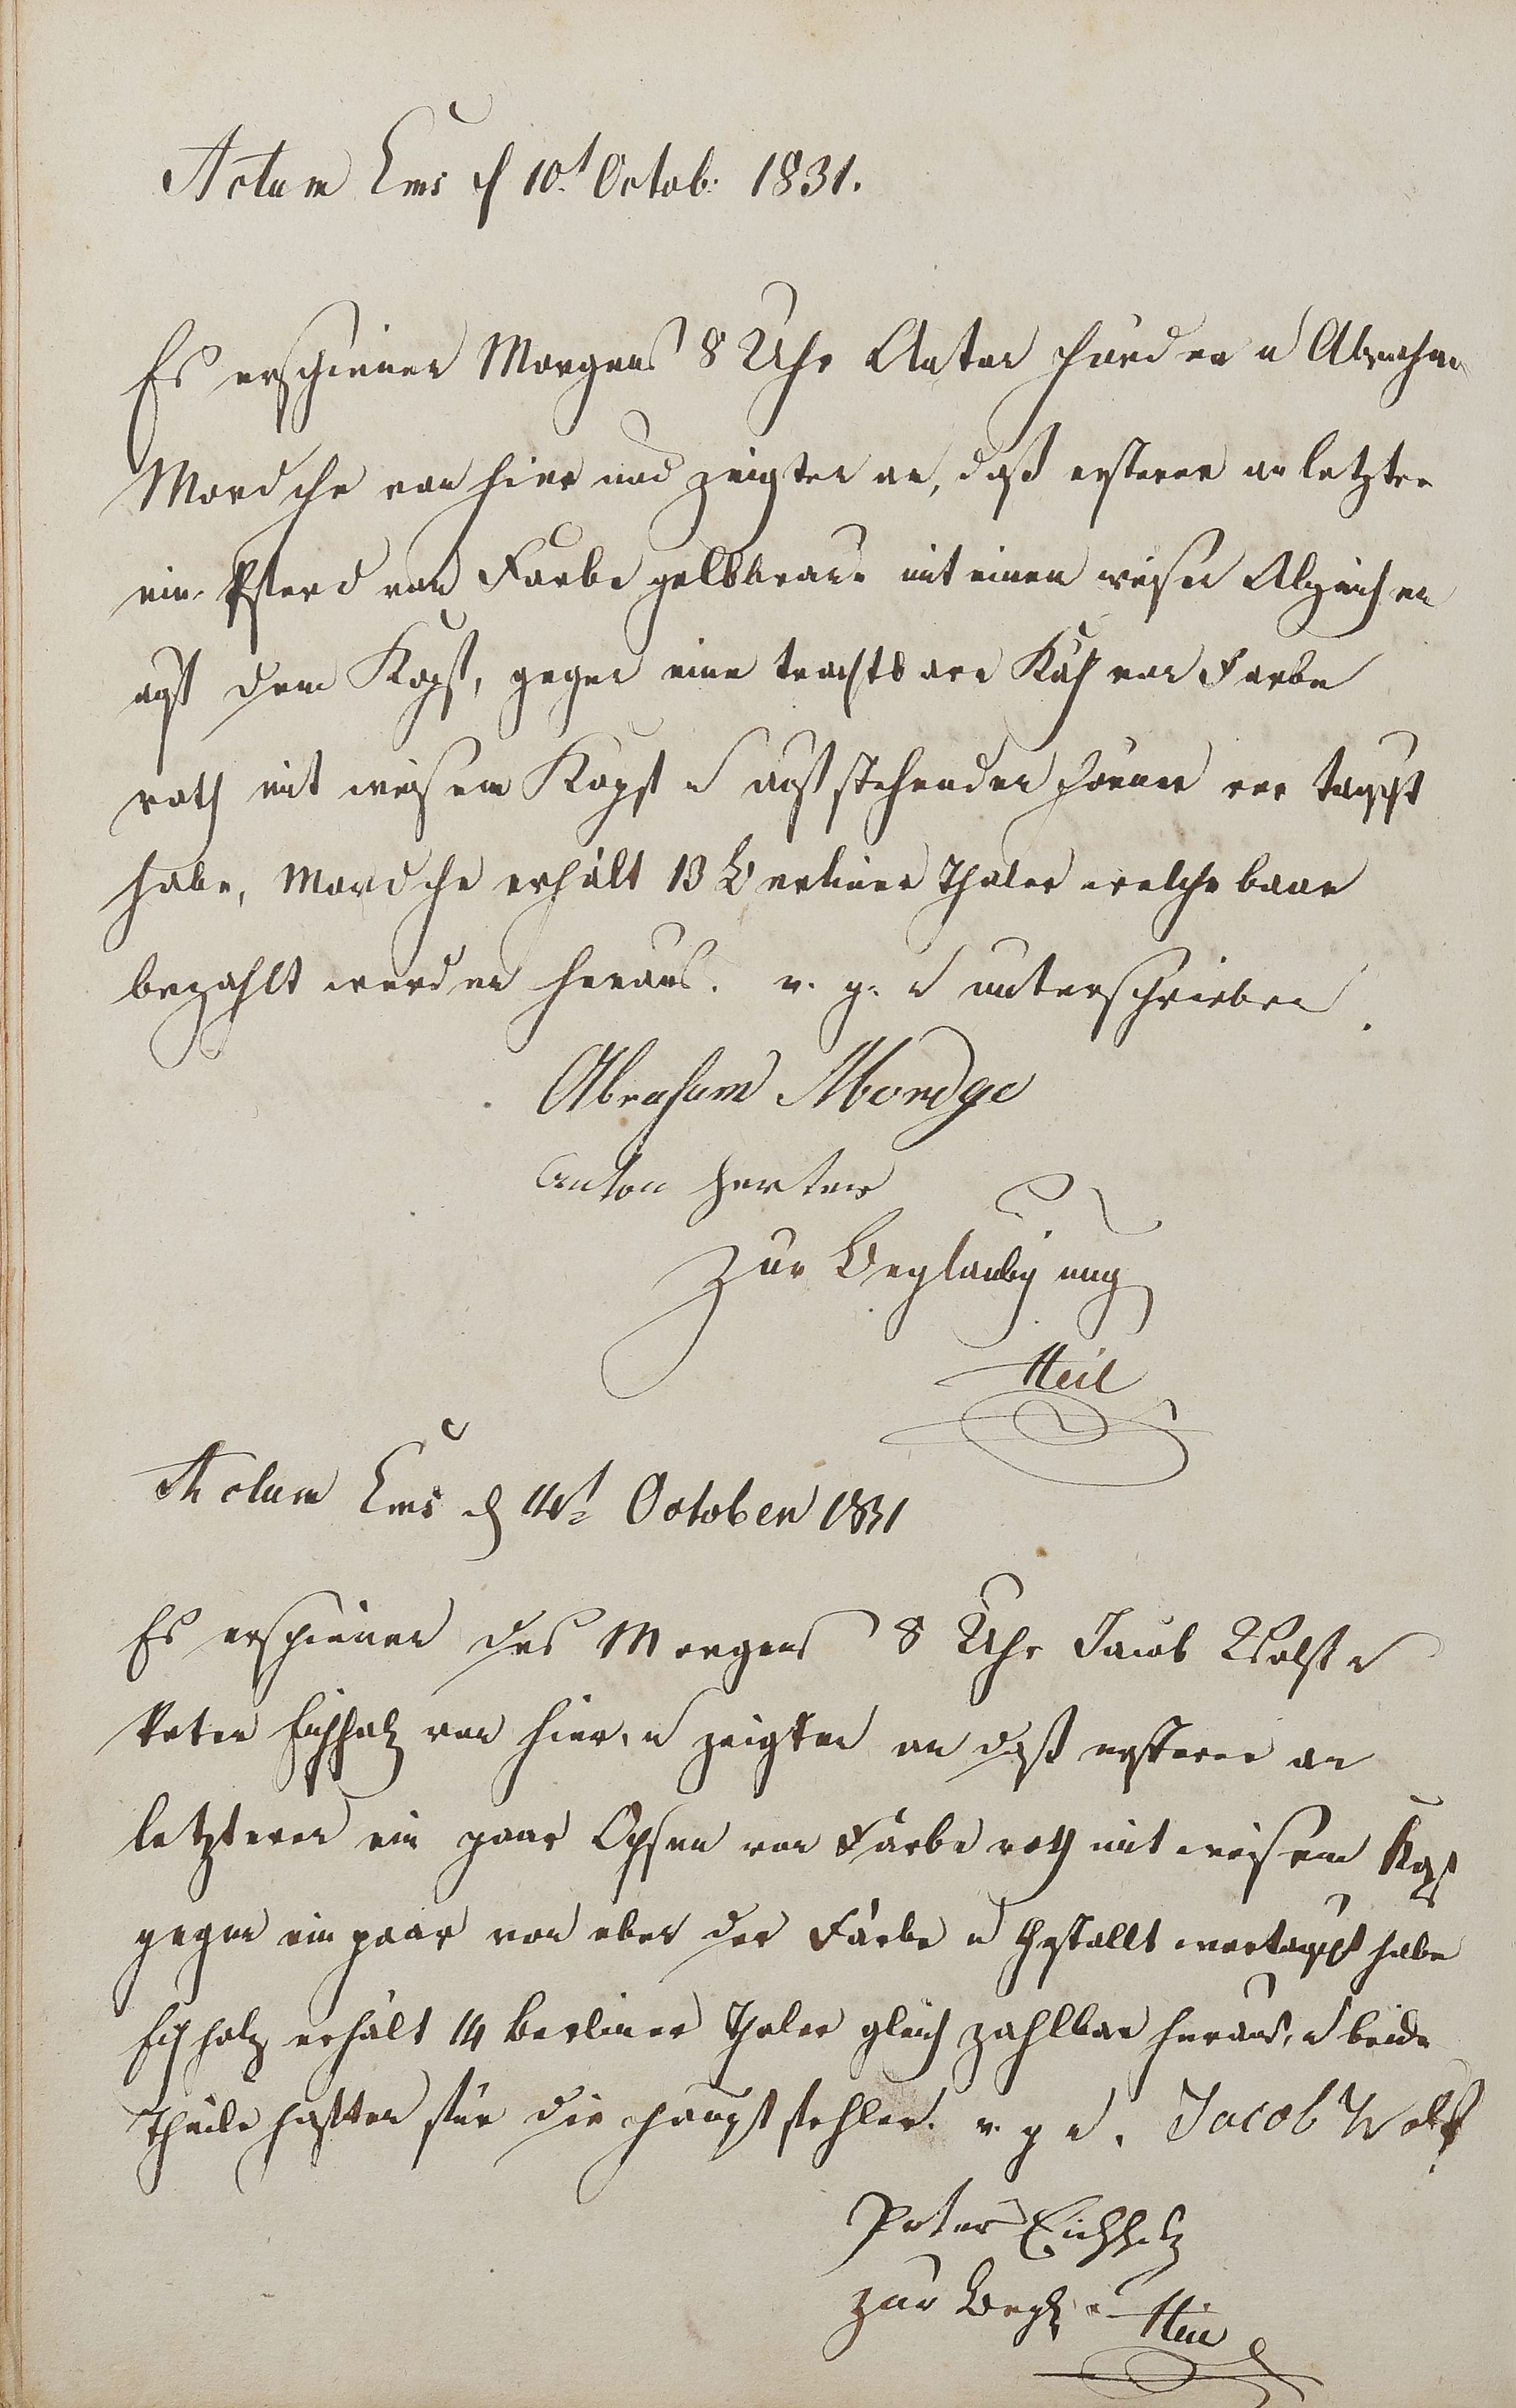 Actum Ems d 10t Octob: 1831.
Es erschienen Morgens 8 Uhr Anton Härder u Abraham
Mordche von hier und zeigten an, daß ersterer an letztren
ein Pferd von Farbe gelbbraun mit einem weisen Abzeichen
auf dem Kopf, gegen eine trachtbare Kuh von Farbe
roth mit weisem Kopf u aufstehenden Hörner ver tauscht
habe, Mordche erhält 13 Berliner Thaler welche baar
bezahlt werden heraus. v. g. u unterschrieben.
Abraham Mordge
Anton Herter
Zur Beglaubigung
Heil
Actum Ems d 14t October 1831
Es erschienen des Morgens 8 Uhr Jacob Wolf u
Peter Eichholz von hier, u zeigten an daß ersterer an
letzteren ein paar Ochsen von Farbe roth mit weisem Kopf
gegen ein paar von eben der Farbe u Gestallt vertauscht habe
Eichholz erhält 14 Berliner Thaler gleich zahlbar heraus, u beide
Theile haften für die Hauptfehler. v. g u. Jacob Wolf
Peter Eichholz
zur Begl. Heil